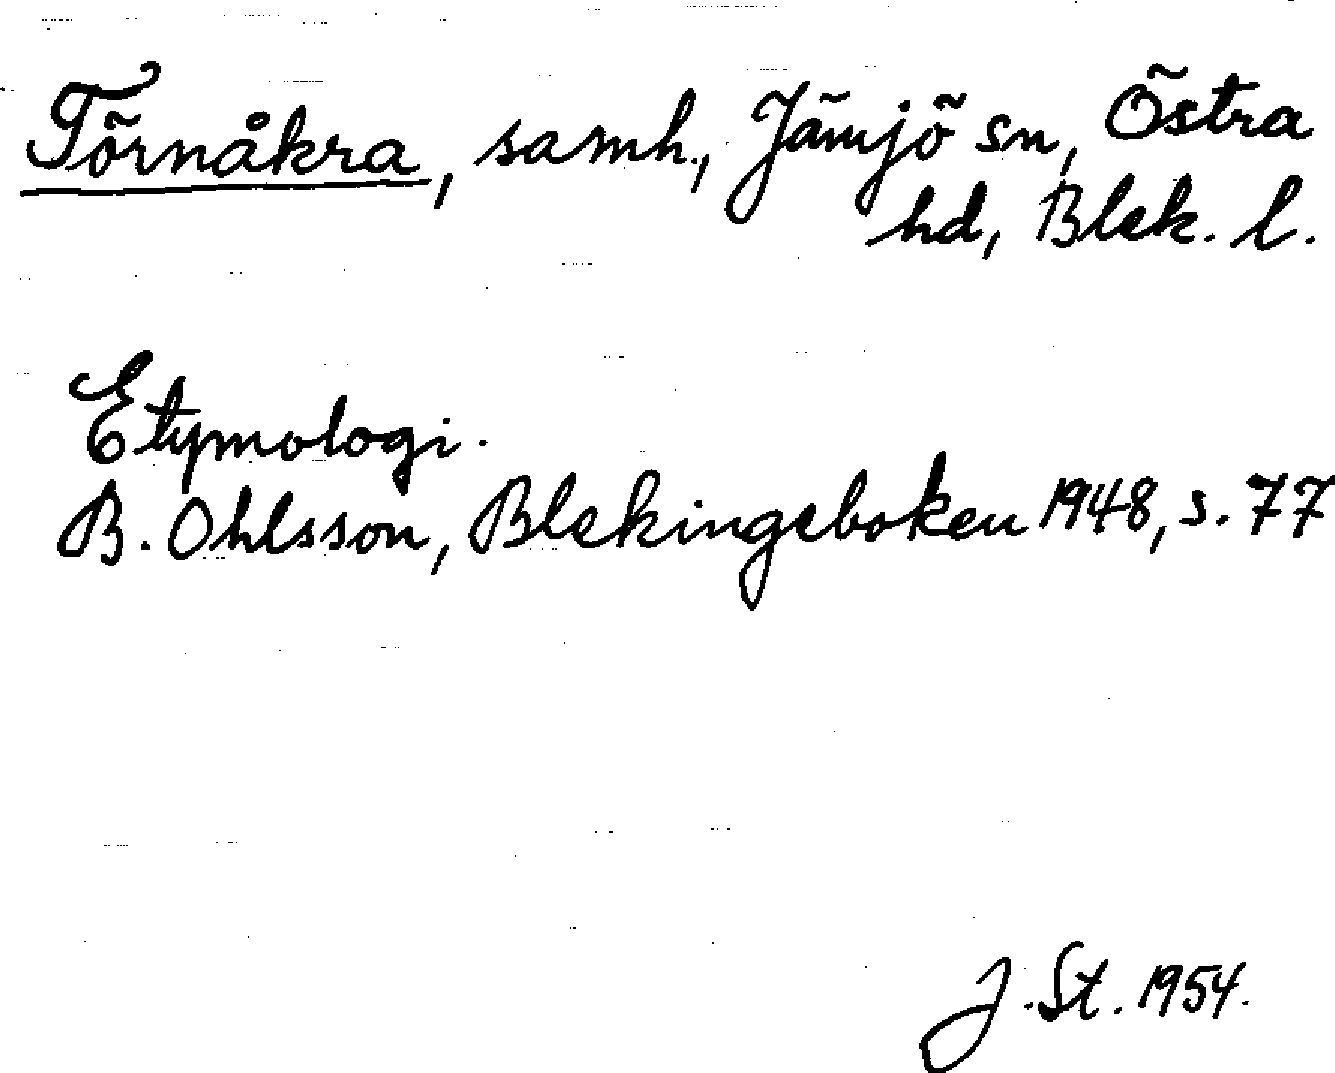 Törnåkra, samh., Jämjö sn, Östra
hd, Blek. l.
Etymologi.
B. Ohlsson, Blekingeboken 1948, s. 77
J. St. 1954.